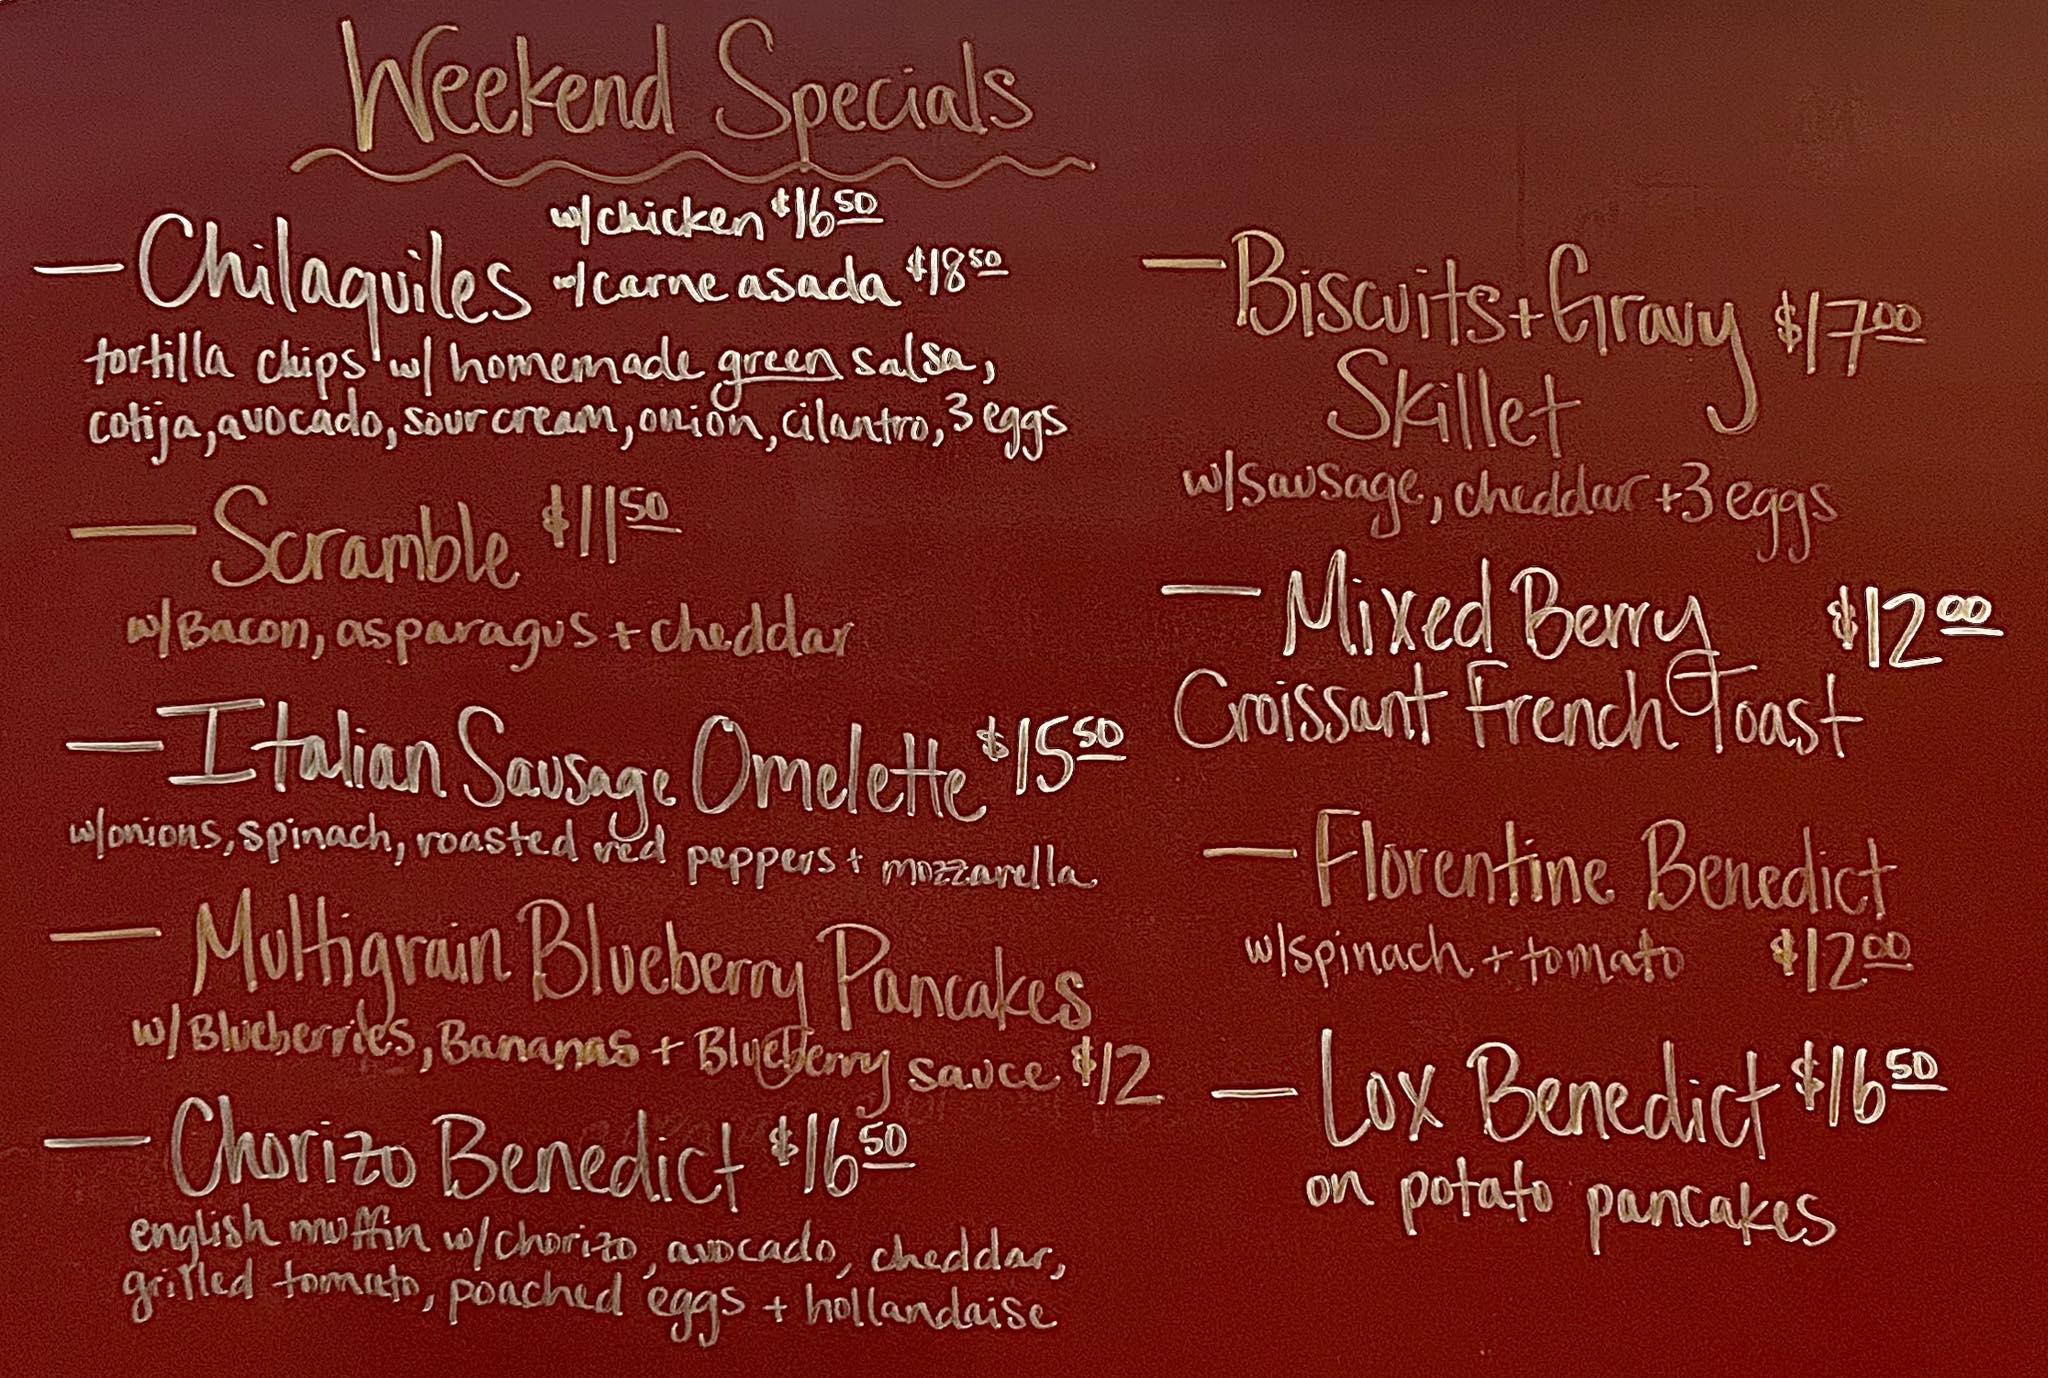 Weekend Specials
w/chicken $16.50
— Chilaquiles w/carne asada $18.50
tortilla chips w/ homemade green salsa,
cotija, avocado, sour cream, onion, cilantro, 3 eggs
— Scramble $11.50
w/Bacon, asparagus + cheddar
— Italian Sausage Omelette $15.50
w/onions, spinach, roasted red peppers + mozzarella
— Multigrain Blueberry Pancakes
w/ Blueberries, Bananas + Blueberry sauce $12
— Chorizo Benedict $16.50
english muffin w/chorizo, avocado, cheddar,
grilled tomato, poached eggs + hollandaise
— Biscuits + Gravy $17.00
Skillet
w/sausage, cheddar + 3 eggs
— Mixed Berry $12.00
Croissant French Toast
— Florentine Benedict
w/spinach + tomato $12.00
— Lox Benedict $16.50
on potato pancakes